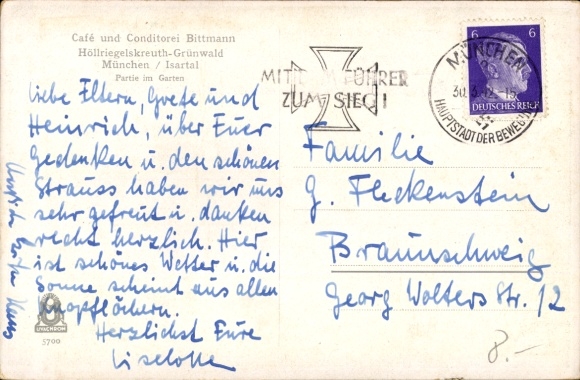 Café und Conditorei Bittmann
Höllriegelskreuth-Grünwald
München / Isartal
Partie im Garten
Liebe Eltern, Grete und
Heinrich, über Euer
Gedenken u. den schönen
Strauss haben wir uns
sehr gefreut u. danken
recht herzlich. Hier
ist schönes Wetter u. die
Sonne scheint aus allen
Knopflöchern.
Herzlichst Eure
Liselotte
Hans
UVACHROM
5700
MIT DEM FÜHRER
ZUM SIEG!
6 6
DEUTSCHES REICH
MÜNCHEN
HAUPTSTADT DER BEWEGUNG
Familie
G. Fleckenstein
Braunschweig
Georg Wolters Str. 12
8.-